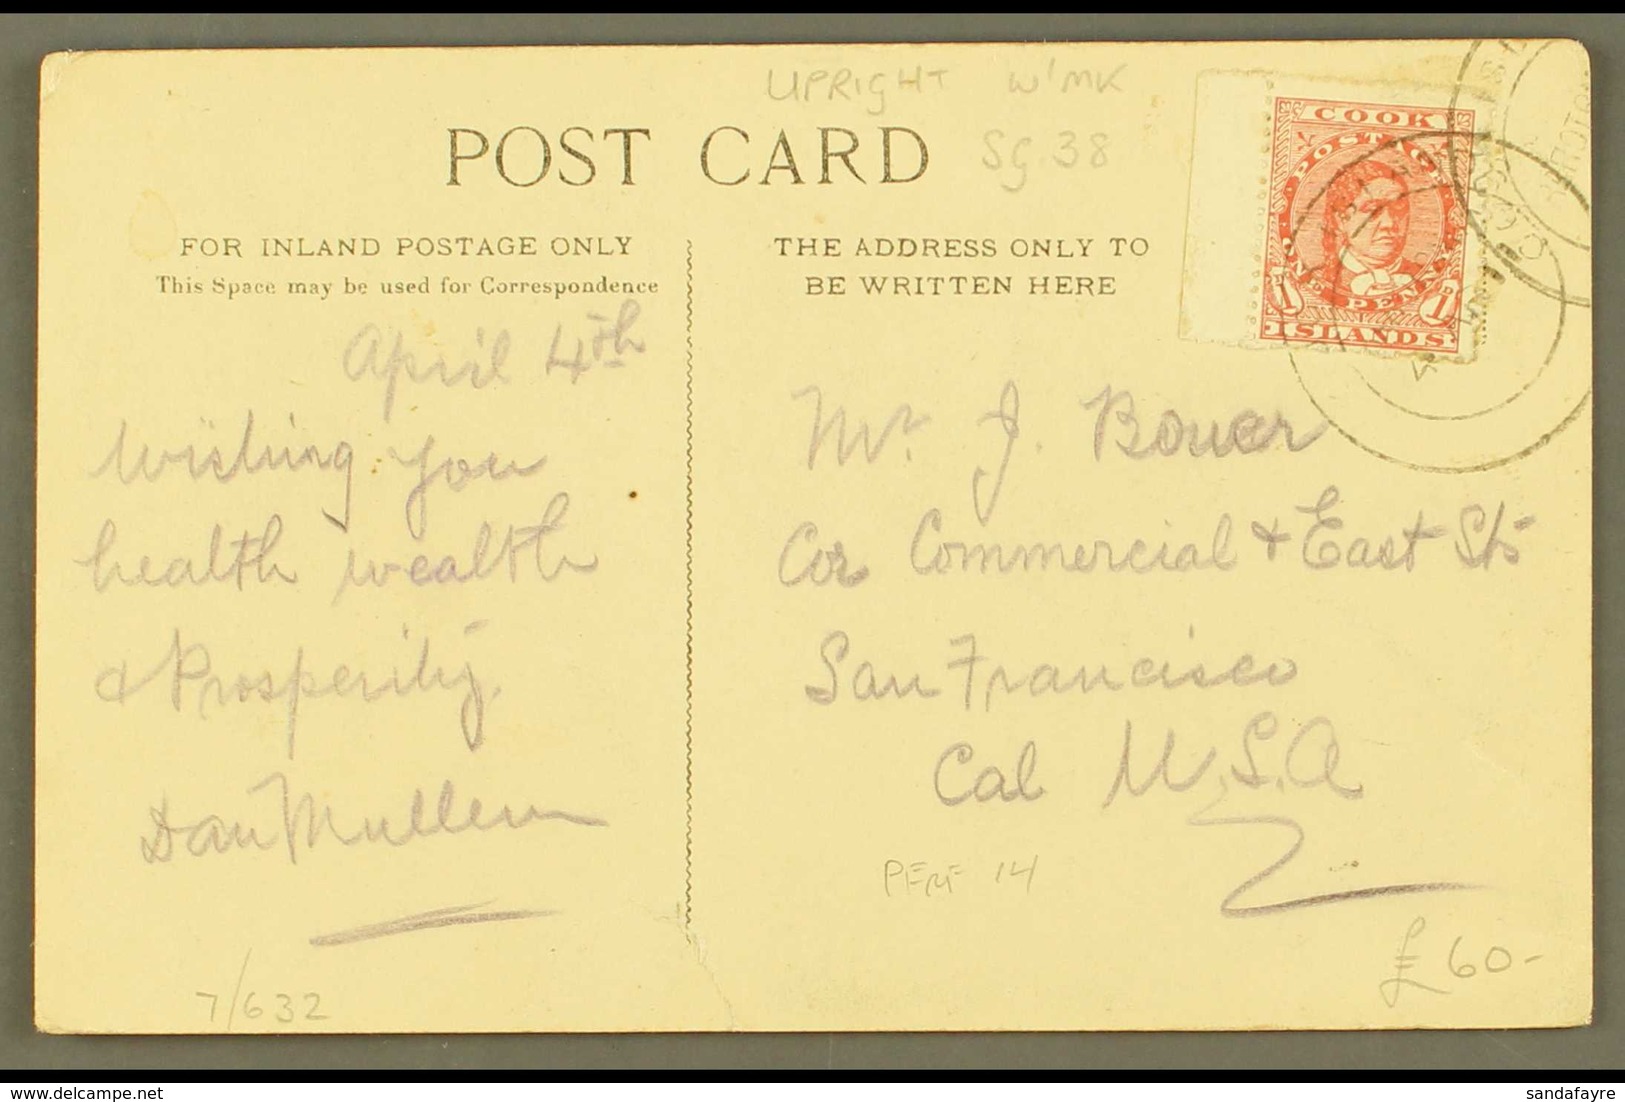 UPRIGHT W'MK
SG.38
POST CARD
COOK
POSTAGE
ONE PENNY
1D 1D
ISLANDS
FOR INLAND POSTAGE ONLY
This Space may be used for Correspondence
THE ADDRESS ONLY TO
BE WRITTEN HERE
April 4th
Wishing you
health wealth
& Prosperity.
Dan Mullen
Mr. J. Bower
Cor Commercial & East Sts
San Francisco
Cal U.S.A
PERF 14
£60-
7/632
sandafayre